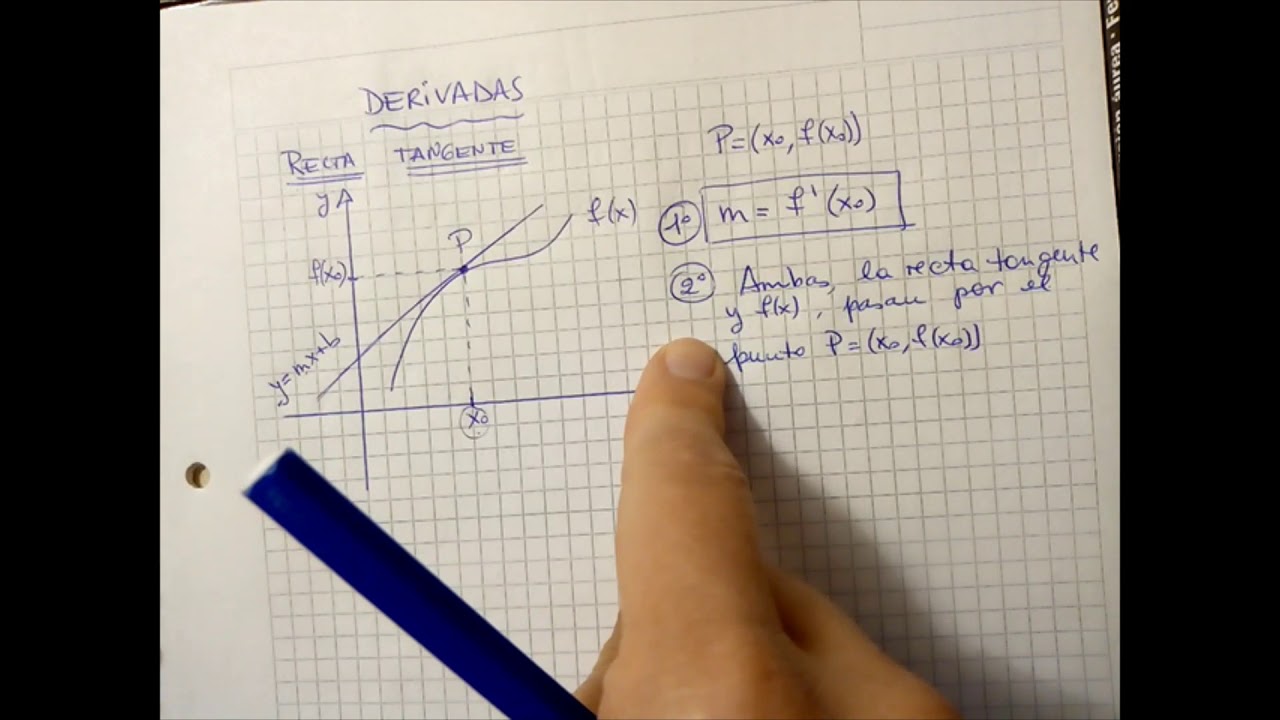 DERIVADAS
RECTA TANGENTE
y
P
f(x)
f(x₀)
y=mx+b
x₀
P=(x₀,f(x₀))
1º m = f'(x₀)
2º Ambas, la recta tangente
y f(x), pasan por el
punto P=(x₀,f(x₀))